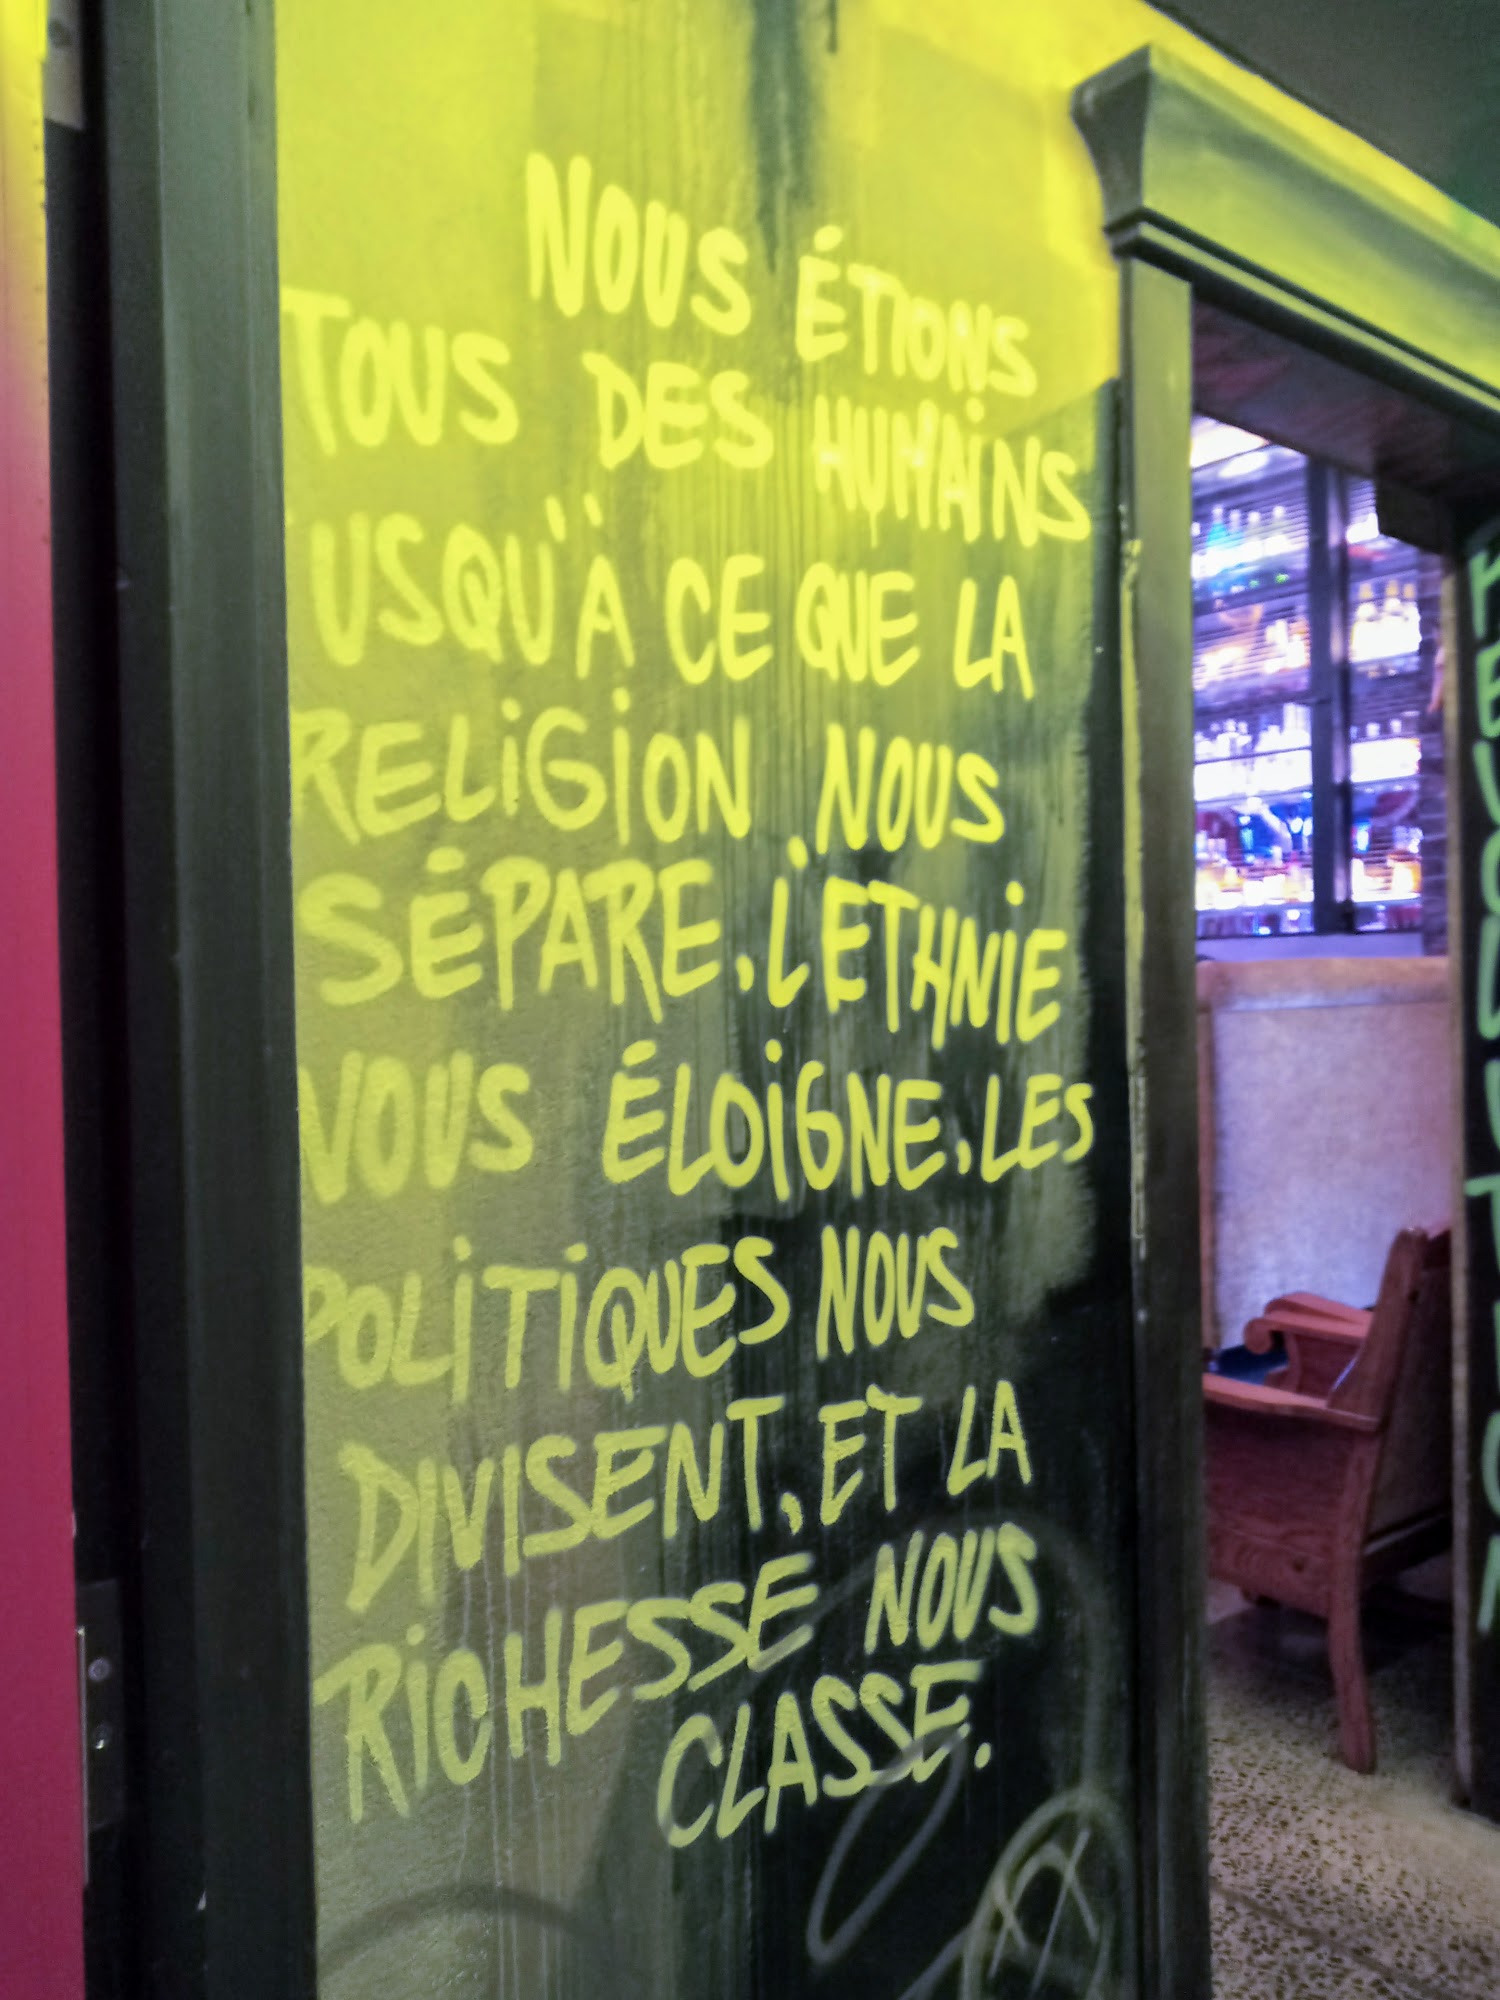 NOUS ÉTIONS
TOUS DES HUMAiNS
JUSQU'À CE QUE LA
RELiGiON NOUS
SÉPARE, L'ETHNiE
NOUS ÉLOiGNE, LES
POLiTiQUES NOUS
DIVISENT, ET LA
RiCHESSE NOUS
CLASSE.